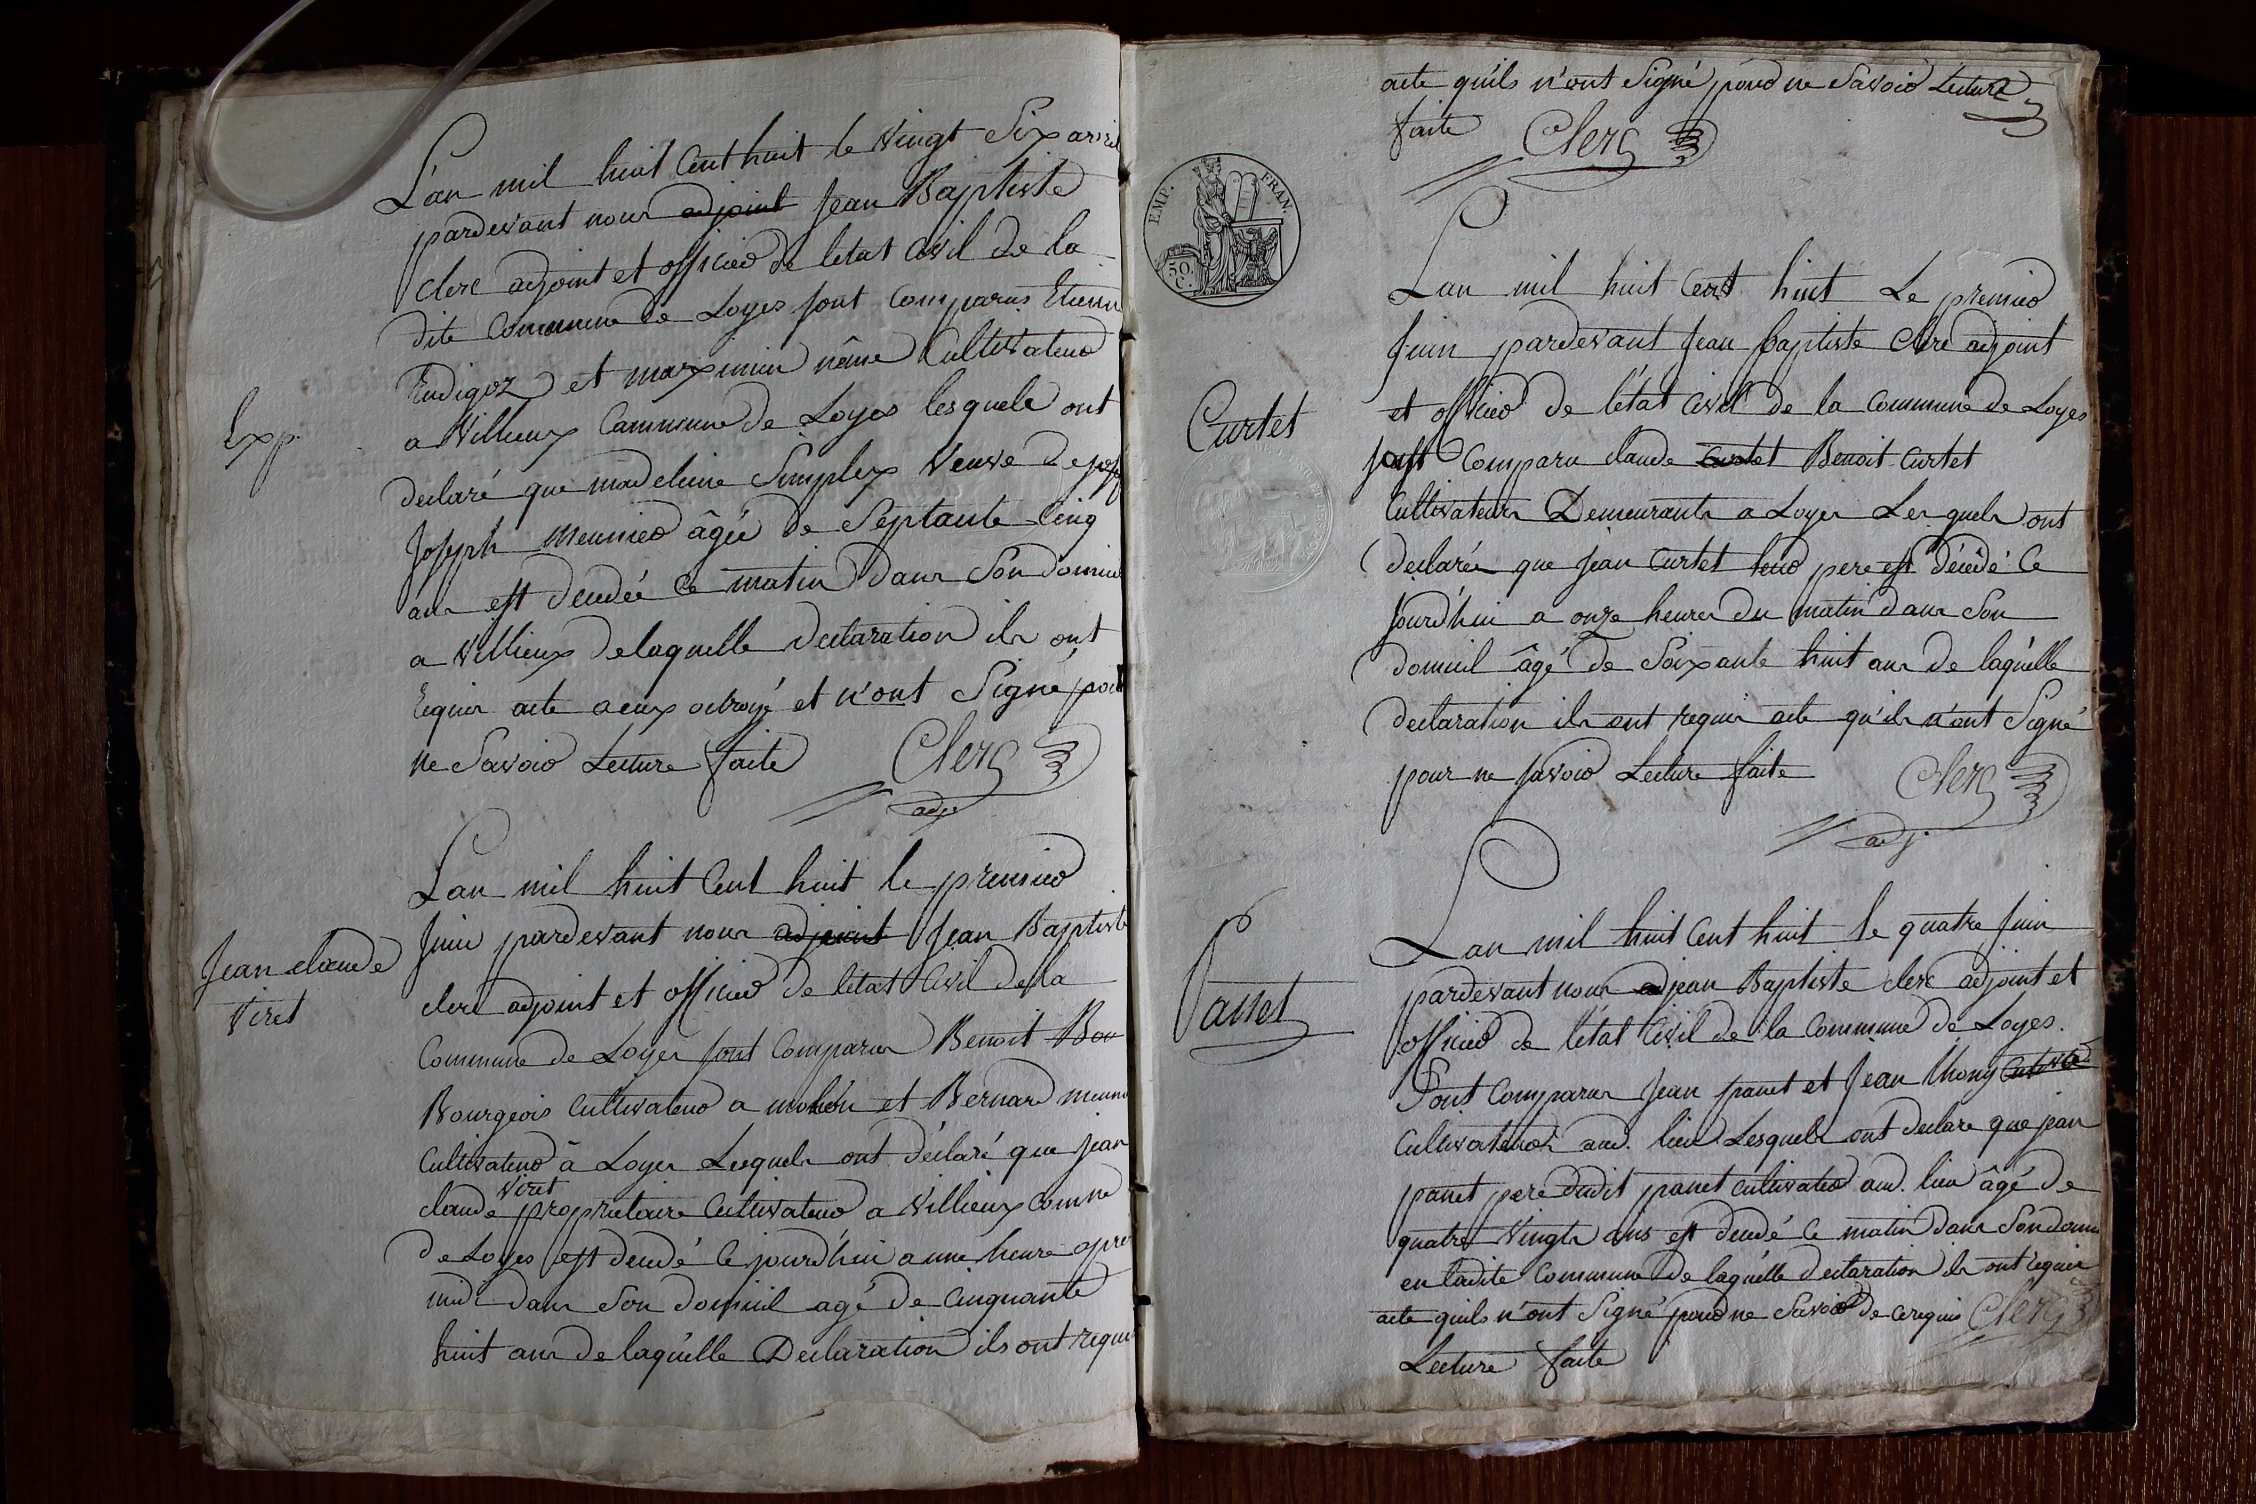 L'an mil huit Cent huit le vingt Six avril
pardevant nous adjoint Jean Baptiste
Clerc adjoint et officier de letat Civil de la
dite Commune de Loyes sont Comparus Etienn
Rudigoz et maximin même Cultivateur
Exp.
a Villieux Commune de Loyes lesquels ont
declaré que madeleine Simplex Veuve de
Joseph meunier âgée de Septante Cinq
ans est décedée ce matin dans Son domici
a Villieux de laquelle declaration ils ont
requis acte a eux octroyé et n'ont Signé pour
ne Savoir Lecture faite
Clerc
adj
Lan mil huit Cent huit le premier
Juin pardevant nous adjoint Jean Baptiste
Jean claude
Viret
clerc adjoint et officier de letat Civil de la
Commune de Loyes sont Comparus Benoit Bou
Bourgeois Cultivateur a molon et Bernard meuni
Cultivateur à Loyes Lesquels ont déclaré que jean
Viret
claude proprietaire Cultivateur a Villieux comne
de Loyes est decedé ce jourd'hui a une heure apres
midi dans Son domicil agé de Cinquante
huit ans de laquelle Declaration ils ont requis
acte quils n'ont Signé pour ne Savoir Lecture
faite Clerc
EMP. FRAN.
50. C.
Lan mil huit Cent huit Le premier
Juin pardevant Jean baptiste Clerc adjoint
et officier de l'état Civil de la Commune de Loyes
Curtet
sont Comparu claude Curtet Benoit Curtet
Cultivateurs Demeurants a Loyes Lesquels ont
declarés que jean Curtet leur pere est décédé Ce
Jourd'hui a onze heures du matin dans Son
domicil âgé de Soixante huit ans de laquelle
declaration ils ont requis acte qu'ils n'ont Signé
pour ne Savoir Lecture faite
Clerc
adj.
Lan mil huit Cent huit le quatre Juin
pardevant nous ad jean Baptiste clerc adjoint et
Panet
officier de l'état Civil de la Commune de Loyes.
Sont Comparus Jean panet et Jean thony
Cultivateurs aud. lieu Lesquels ont declare que jean
panet pere dudit panet cultivateur aud. lieu âgé de
quatre Vingts ans est decedé ce matin dans Son domi
en ladite Commune de laquelle declaration ils ont requis
acte quils n'ont Signé pour ne Savoir de ce requis Clerc
Lecture faite